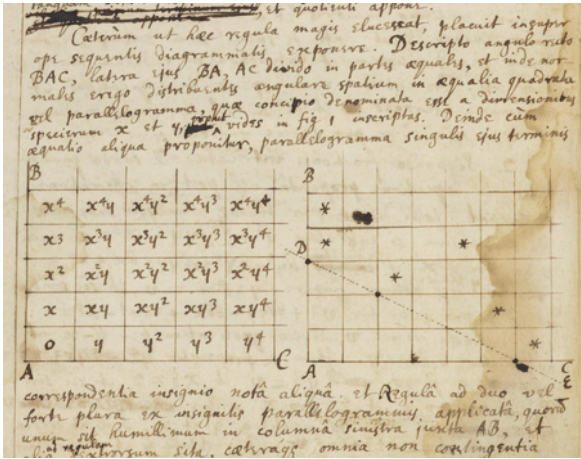 et quotienti appone.
Cæterùm ut hæc regula magis elucescat, placuit insuper
ope sequentis diagrammatis exponere. Descripto angulo recto
BAC, latera ejus BA, AC divido in partes æquales, et inde nor-
males erigo distribuentes angulare spatium in æqualia quadrata
vel parallelogramma, quæ concipio denominata esse a dimensionibus
specierum x et y, prout vides in fig 1 inscriptas. Deinde cùm
æquatio aliqua proponitur, parallelogramma singulis ejus terminis
B
x4 x4y x4y2 x4y3 x4y4
x3 x3y x3y2 x3y3 x3y4
x2 x2y x2y2 x2y3 x2y4
x xy xy2 xy3 xy4
0 y y2 y3 y4
A C
B
*
D * *
*
*
*
A C
E
correspondentia insignio notâ aliquâ. et Regulâ ad duo vel
fortè plura ex insignitis parallelogrammis applicatâ, quorum
unum sit humillimum in columnâ sinistra juxta AB, et
ad regulam
extrorsum sita, cæteraqs omnia non contingentia